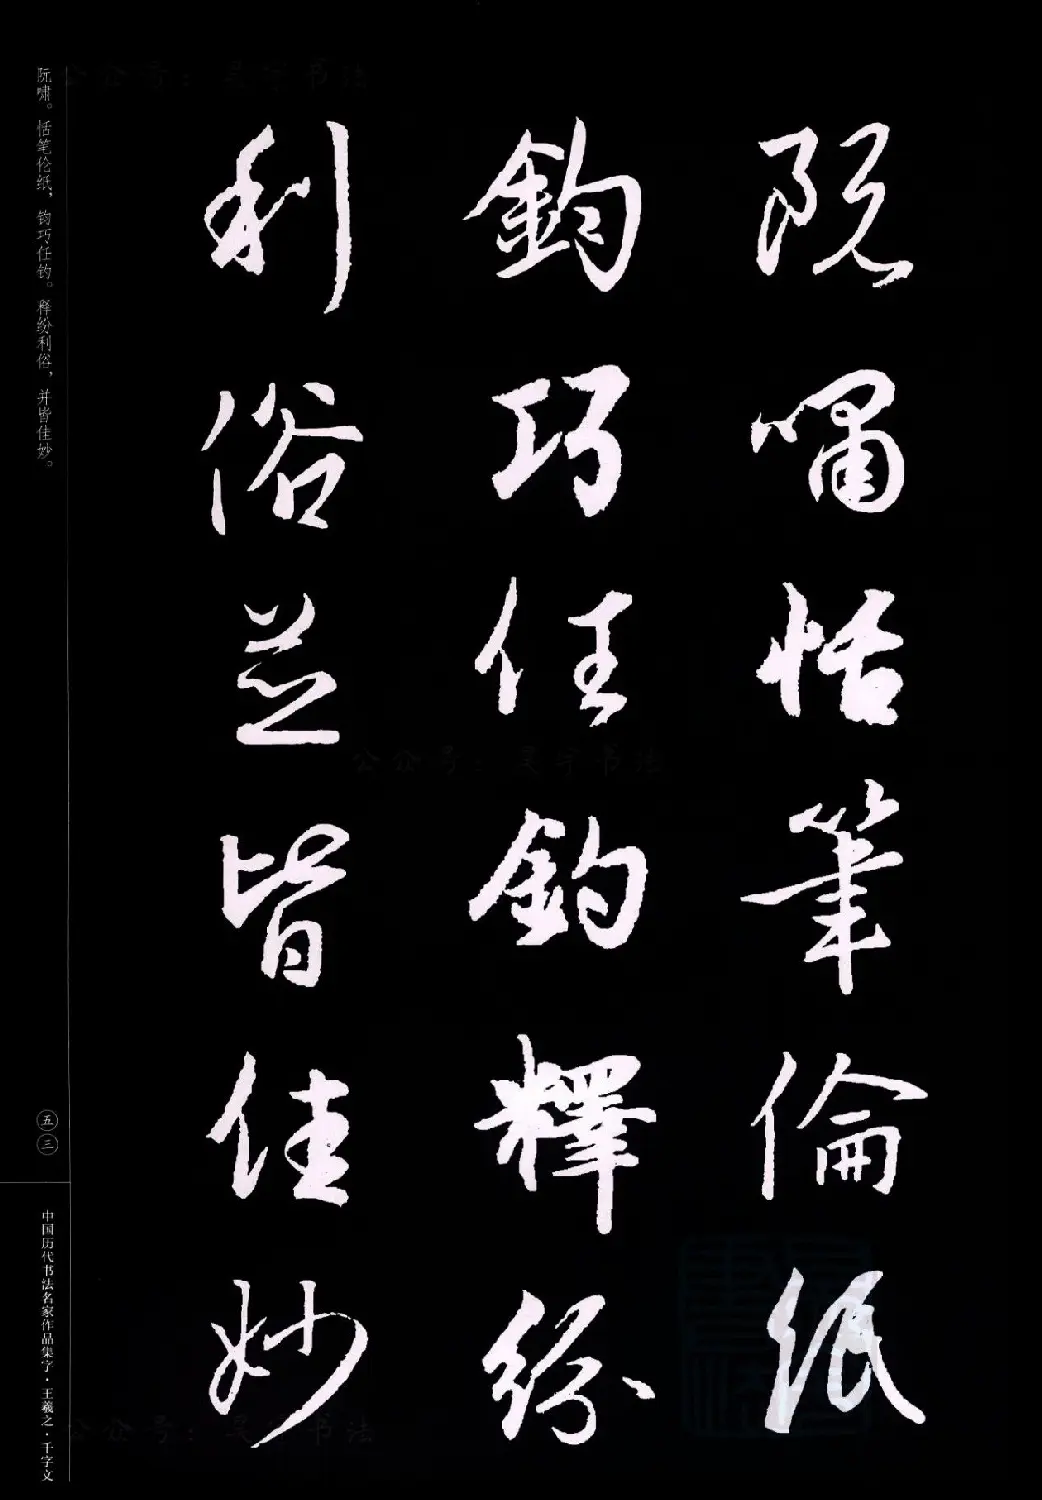 阮嘯恬筆倫紙
鈞巧任釣釋紛
利俗並皆佳妙
阮啸。恬笔伦纸，钧巧任钓。释纷利俗，并皆佳妙。
五三
中国历代书法名家作品集字·王羲之·千字文
公众号：吴宇书法
公众号：吴宇书法
公众号：吴宇书法